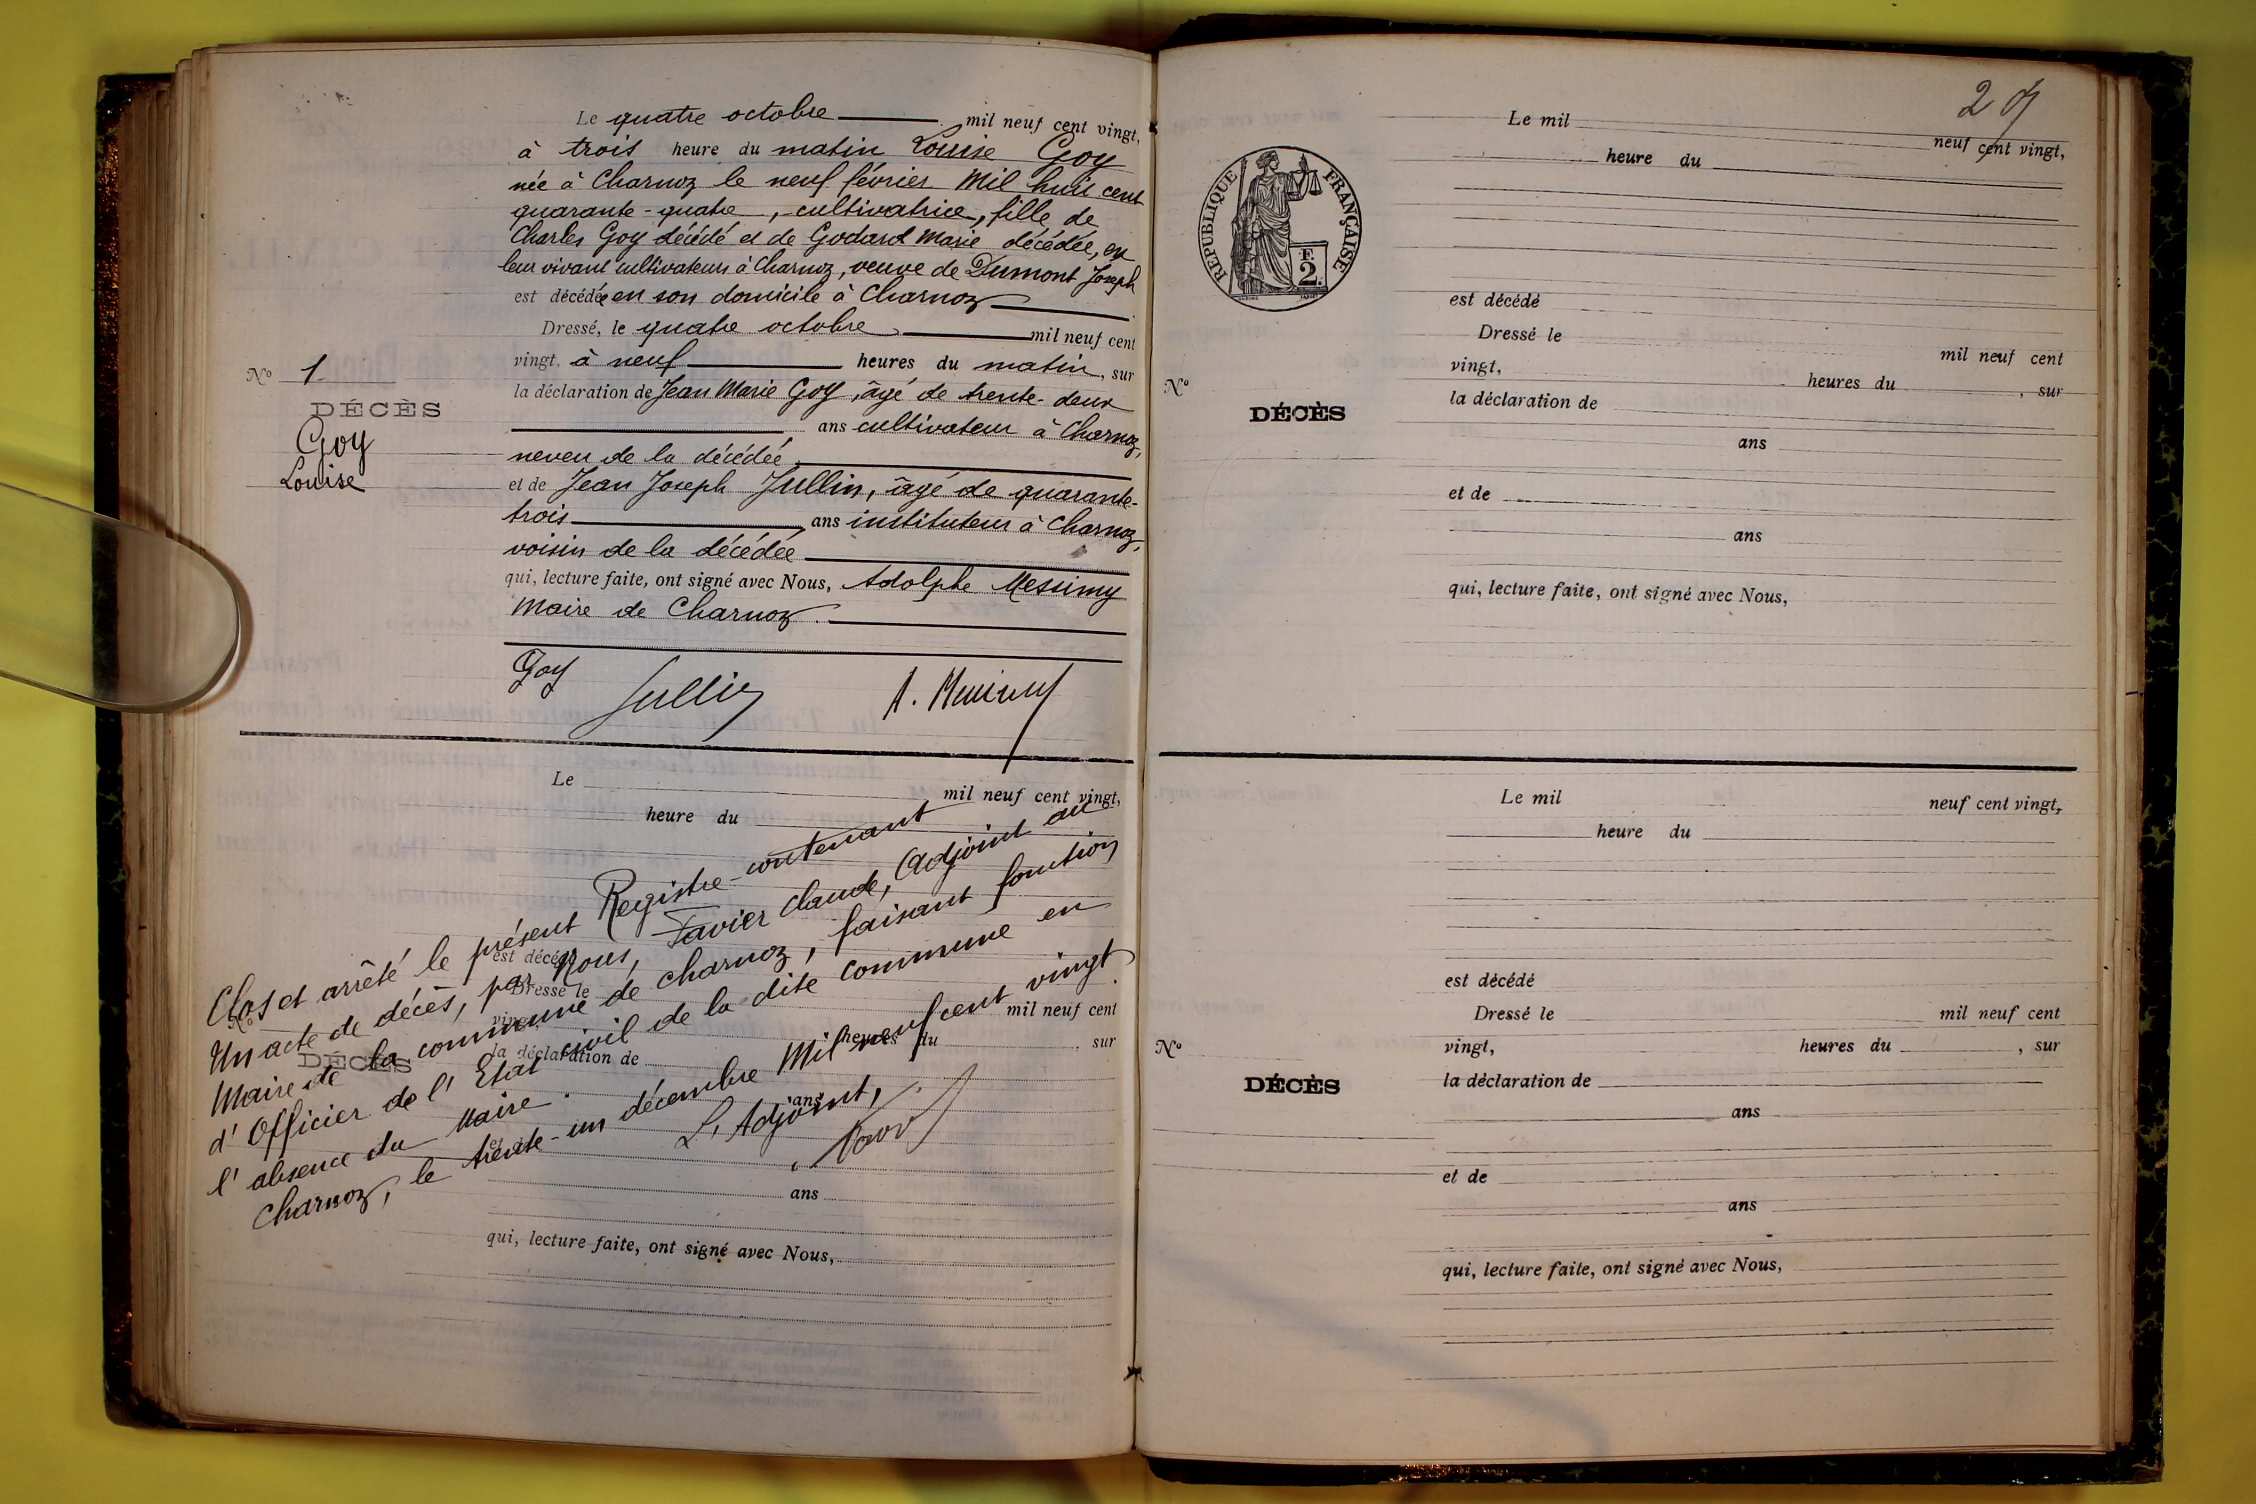 Le quatre octobre mil neuf cent vingt,
à trois heure du matin Louise Goy
née à Charnoz le neuf février mil huit cent
quarante-quatre, cultivatrice, fille de
Charles Goy décédé et de Godard Marie décédée, en
leur vivant cultivateurs à Charnoz, veuve de Dumont Joseph
est décédée en son domicile à Charnoz
Dressé, le quatre octobre mil neuf cent
vingt, à neuf heures du matin, sur
la déclaration de Jean Marie Goy, âgé de trente-deux
ans cultivateur à Charnoz,
neveu de la décédée,
et de Jean Joseph Jullin, âgé de quarante-
trois ans instituteur à Charnoz,
voisin de la décédée
qui, lecture faite, ont signé avec Nous, Adolphe Messimy
Maire de Charnoz.
Goy Jullin A. Messimy
Nº 1
DÉCÈS
Goy
Louise
Le mil neuf cent vingt,
heure du
est décédé
Dressé le mil neuf cent
vingt, heures du , sur
la déclaration de
ans
et de
ans
qui, lecture faite, ont signé avec Nous,
Nº
DÉCÈS
Clos et arrêté le présent Registre contenant
Un acte de décès, par Nous, Favier Claude, Adjoint au
Maire de la commune de Charnoz, faisant fonction
d'Officier de l'Etat civil de la dite commune en
l'absence du Maire.
Charnoz, le trente-un décembre Mil neuf cent vingt.
L'Adjoint,
2
RÉPUBLIQUE FRANÇAISE
F
2.
Le mil neuf cent vingt,
heure du
est décédé
Dressé le mil neuf cent
vingt, heures du , sur
la déclaration de
ans
et de
ans
qui, lecture faite, ont signé avec Nous,
Nº
DÉCÈS
Le mil neuf cent vingt,
heure du
est décédé
Dressé le mil neuf cent
vingt, heures du , sur
la déclaration de
ans
et de
ans
qui, lecture faite, ont signé avec Nous,
Nº
DÉCÈS